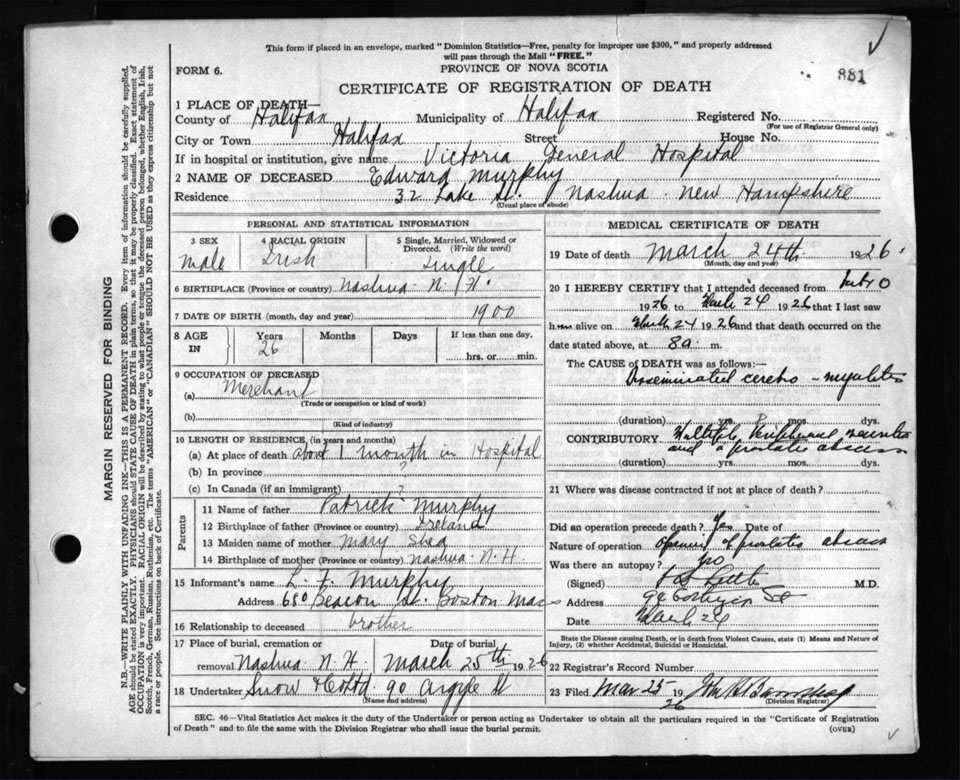 This form if placed in an envelope, marked "Dominion Statistics—Free, penalty for improper use $300," and properly addressed
will pass through the Mail "FREE."
FORM 6.
PROVINCE OF NOVA SCOTIA
881
CERTIFICATE OF REGISTRATION OF DEATH
1 PLACE OF DEATH—
County of Halifax Municipality of Halifax Registered No.
(For use of Registrar General only)
City or Town Halifax Street House No.
If in hospital or institution, give name Victoria General Hospital
2 NAME OF DECEASED Edward Murphy
Residence 32 Lake St. Nashua New Hampshire
(Usual place of abode)
MARGIN RESERVED FOR BINDING
N.B.—WRITE PLAINLY WITH UNFADING INK—THIS IS A PERMANENT RECORD. Every item of information should be carefully supplied.
AGE should be stated EXACTLY. PHYSICIANS should STATE CAUSE OF DEATH in plain terms, so that it may be properly classified. Exact statement of
OCCUPATION is very important. RACIAL ORIGIN will be described by stating to what people or tongue the deceased person belonged, whether English, Irish,
Scotch, French, German, Russian, Ruthenian, etc. The terms "AMERICAN" or "CANADIAN" SHOULD NOT BE USED as they express citizenship but not
a race or people. See instructions on back of Certificate.
PERSONAL AND STATISTICAL INFORMATION
3 SEX
male
4 RACIAL ORIGIN
Irish
5 Single, Married, Widowed or
Divorced. (Write the word)
Single
6 BIRTHPLACE (Province or country) Nashua N. H.
7 DATE OF BIRTH (month, day and year) 1900
8 AGE
IN
Years Months Days If less than one day,
26 hrs. or min.
9 OCCUPATION OF DECEASED
(a) Merchant
(Trade or occupation or kind of work)
(b)
(Kind of industry)
10 LENGTH OF RESIDENCE, (in years and months)
(a) At place of death about 1 month in Hospital
(b) In province ?
(c) In Canada (if an immigrant) ?
Parents
11 Name of father Patrick Murphy
12 Birthplace of father (Province or country) Ireland
13 Maiden name of mother Mary Shea
14 Birthplace of mother (Province or country) Nashua N. H
15 Informant's name L. F. Murphy
Address 680 Beacon St. Boston Mass
16 Relationship to deceased brother
17 Place of burial, cremation or Date of burial
removal Nashua N. H. March 25th 1926
18 Undertaker Snow & Co Ltd 90 Argyle St
(Name and address)
MEDICAL CERTIFICATE OF DEATH
19 Date of death March 24th 1926
(Month, day and year)
20 I HEREBY CERTIFY that I attended deceased from
1926 to March 24 1926 that I last saw
him alive on March 24 1926 and that death occurred on
the date stated above, at 8 a. m.
The CAUSE OF DEATH was as follows:—
Disseminated cerebro - myelitis
(duration) yrs. mos. dys.
CONTRIBUTORY Multiple Peripheral neuritis
and a prostatic abscess
(duration) yrs. mos. dys.
21 Where was disease contracted if not at place of death?
Did an operation precede death? Yes Date of
Nature of operation Opening of prostatic abscess
Was there an autopsy? no
(Signed) M.D.
Address St
Date March 24
State the Disease causing Death, or in death from Violent Causes, state (1) Means and Nature of
Injury, (2) whether Accidental, Suicidal or Homicidal.
22 Registrar's Record Number
23 Filed Mar 25 1926
(Division Registrar)
SEC. 46—Vital Statistics Act makes it the duty of the Undertaker or person acting as Undertaker to obtain all the particulars required in the "Certificate of Registration
of Death" and to file the same with the Division Registrar who shall issue the burial permit. (OVER)